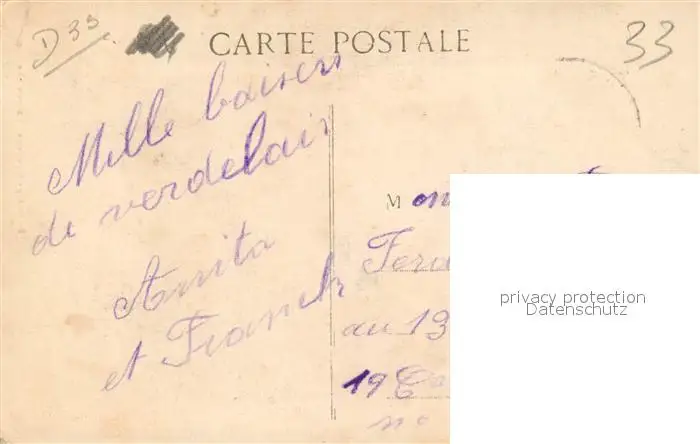 D 33
CARTE POSTALE
33
Mille baisers
de verdelais
Anita
et Franck
Mon
Ferd
au 19
19
no
privacy protection
Datenschutz